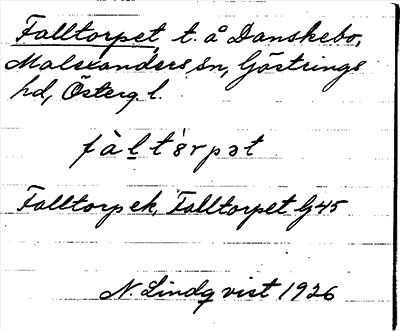 Falltorpet, t. å Danskebo,
Malexanders sn, Göstrings
hd, Österg. l.
fàl̲t'ɞrpət
Falltorp ek, Falltorpet Gj 45
N. Lindqvist 1926